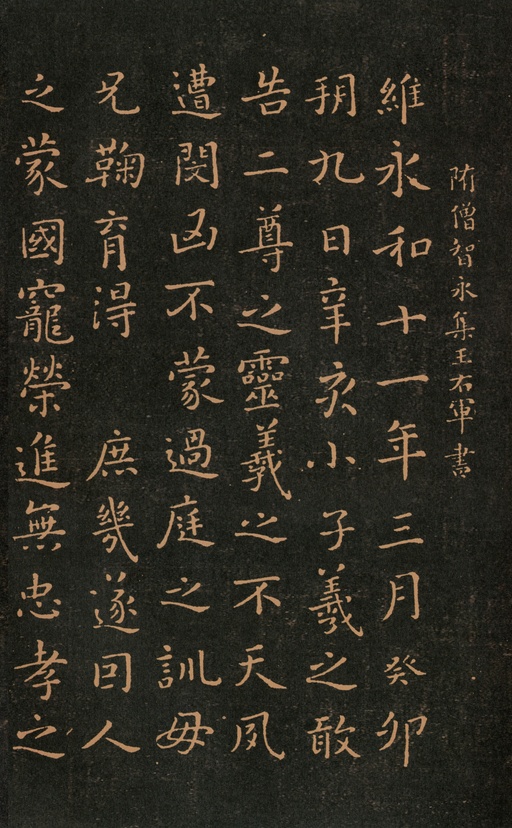 隋僧智永集王右軍書
維永和十一年三月癸卯
朔九日辛亥小子羲之敢
告二尊之靈羲之不天夙
遭閔凶不蒙過庭之訓毋
兄鞠育得 庶幾遂因人
之蒙國寵榮進無忠孝之